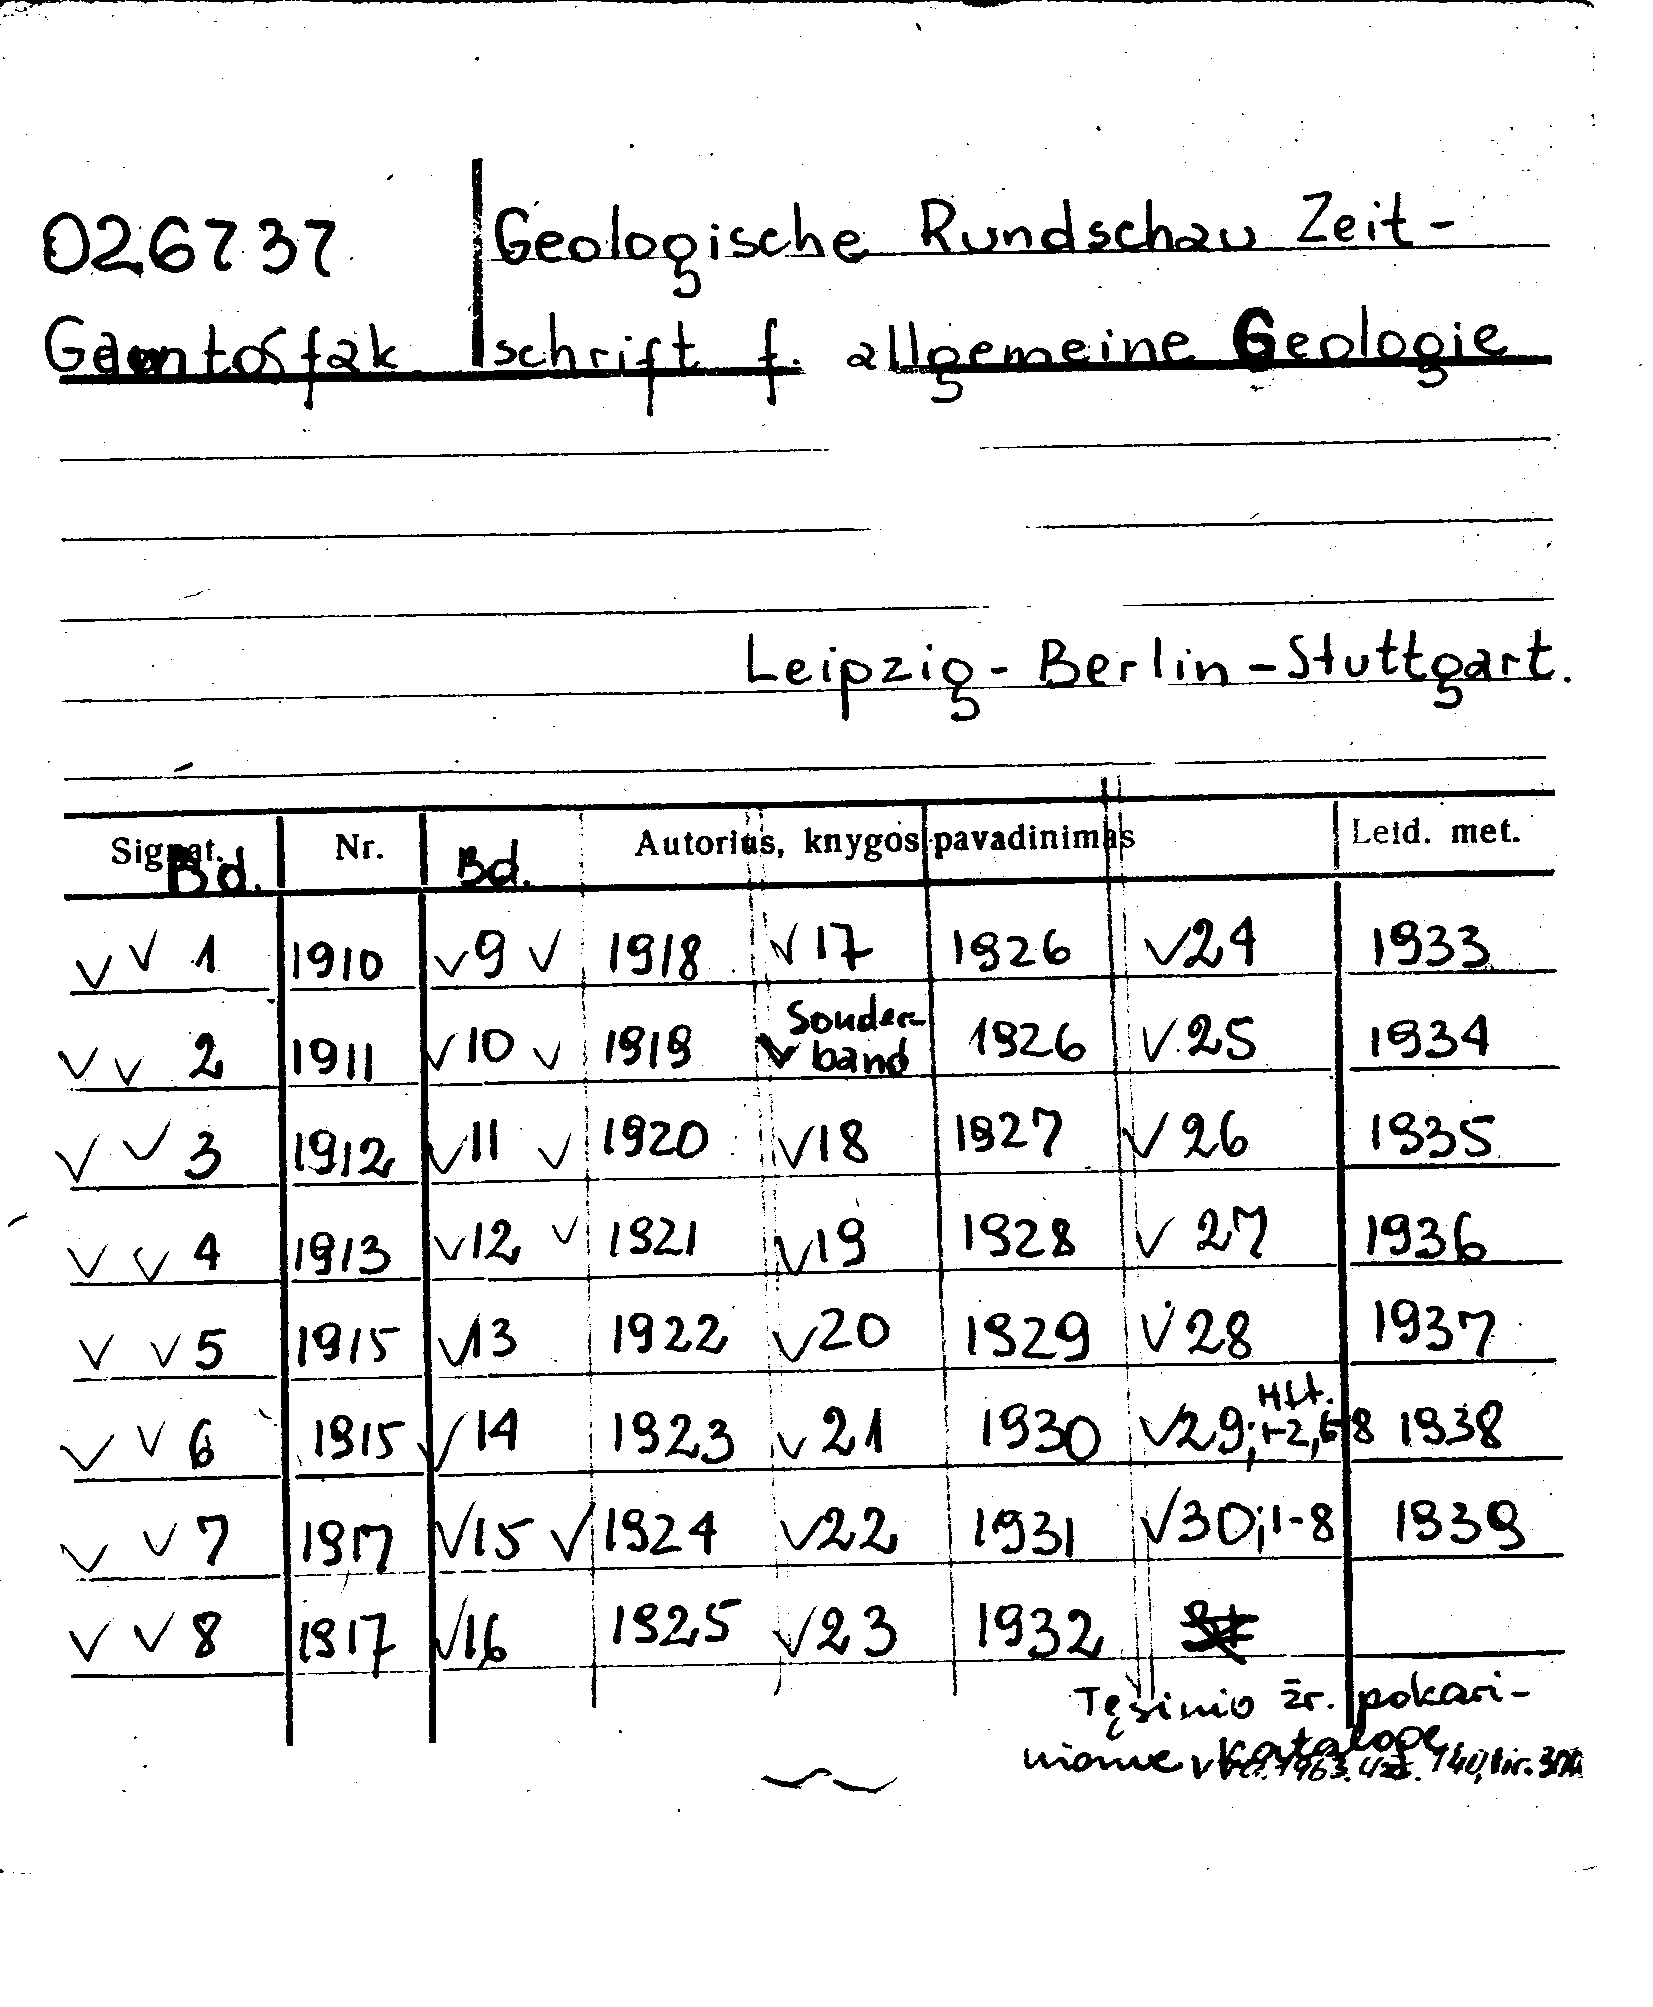 026737 Geologische Rundschau Zeit-
Gamtosfak. schrift f. allgemeine Geologie
Leipzig - Berlin - Stuttgart.
Signat. Nr. Autorius, knygos pavadinimas Leid. met.
Bd. Bd.
√ √ 1 1910 √9 √ 1918 √17 1926 √24 1933
√ √ 2 1911 √10 √ 1919 √ Sonder-band 1926 √25 1934
√ √ 3 1912 √11 √ 1920 √18 1927 √26 1935
√ √ 4 1913 √12 √ 1921 √19 1928 √ 27 1936
√ √ 5 1915 √13 1922 √20 1929 √28 1937
√ √ 6 1915 √14 1923 √21 1930 √29; Hft. 1-2, 6-8 1938
√ √ 7 1917 √15 √ 1924 √22 1931 √30; 1-8 1939
√ √ 8 1917 √16 1925 √23 1932
Tęsinio žr. pokari-
niame kataloge
1963. 140,